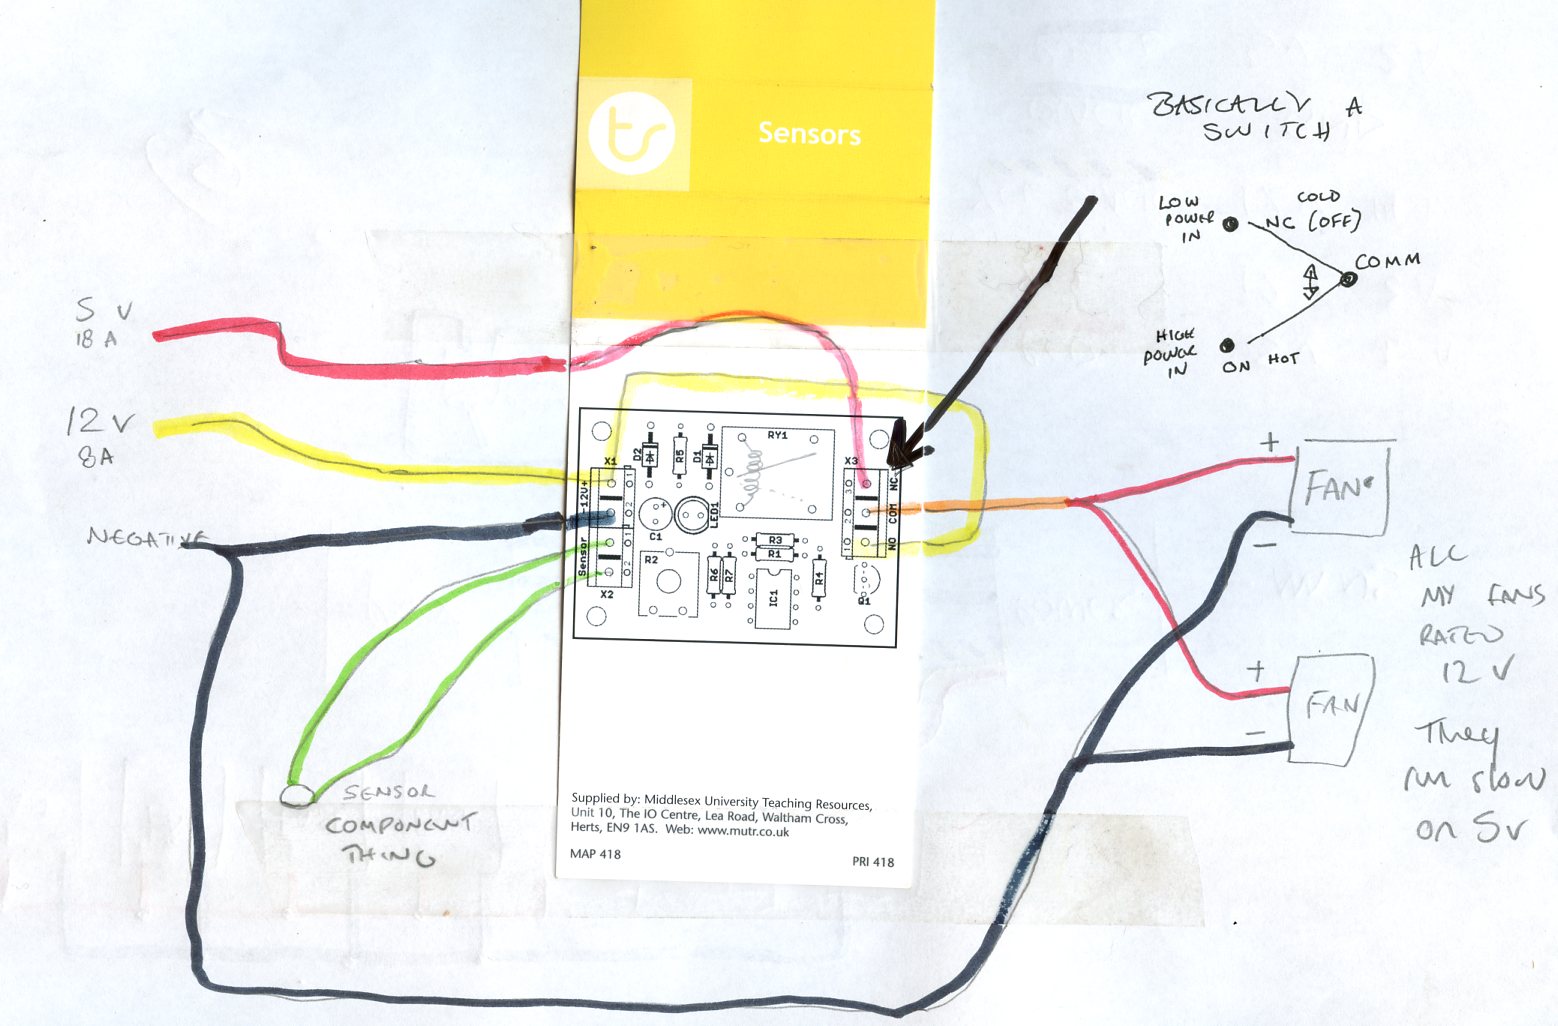 ts
Sensors
BASICALLY A
SWITCH
LOW
POWER
IN
COLD
NC (OFF)
COMM
HIGH
POWER
IN
ON HOT
5 V
18 A
12 V
8A
NEGATIVE
SENSOR
COMPONENT
THING
X1
-12V+
Sensor
X2
1
2
1
2
D2
R5
D1
RY1
X3
3
2
1
NC
COM
NO
C1
+
LED1
R2
R6
R7
R3
R1
IC1
R4
Q1
+
FAN
-
+
FAN
-
ALL
MY FANS
RATED
12 V
They
run slow
on 5v
Supplied by: Middlesex University Teaching Resources,
Unit 10, The IO Centre, Lea Road, Waltham Cross,
Herts, EN9 1AS. Web: www.mutr.co.uk
MAP 418
PRI 418